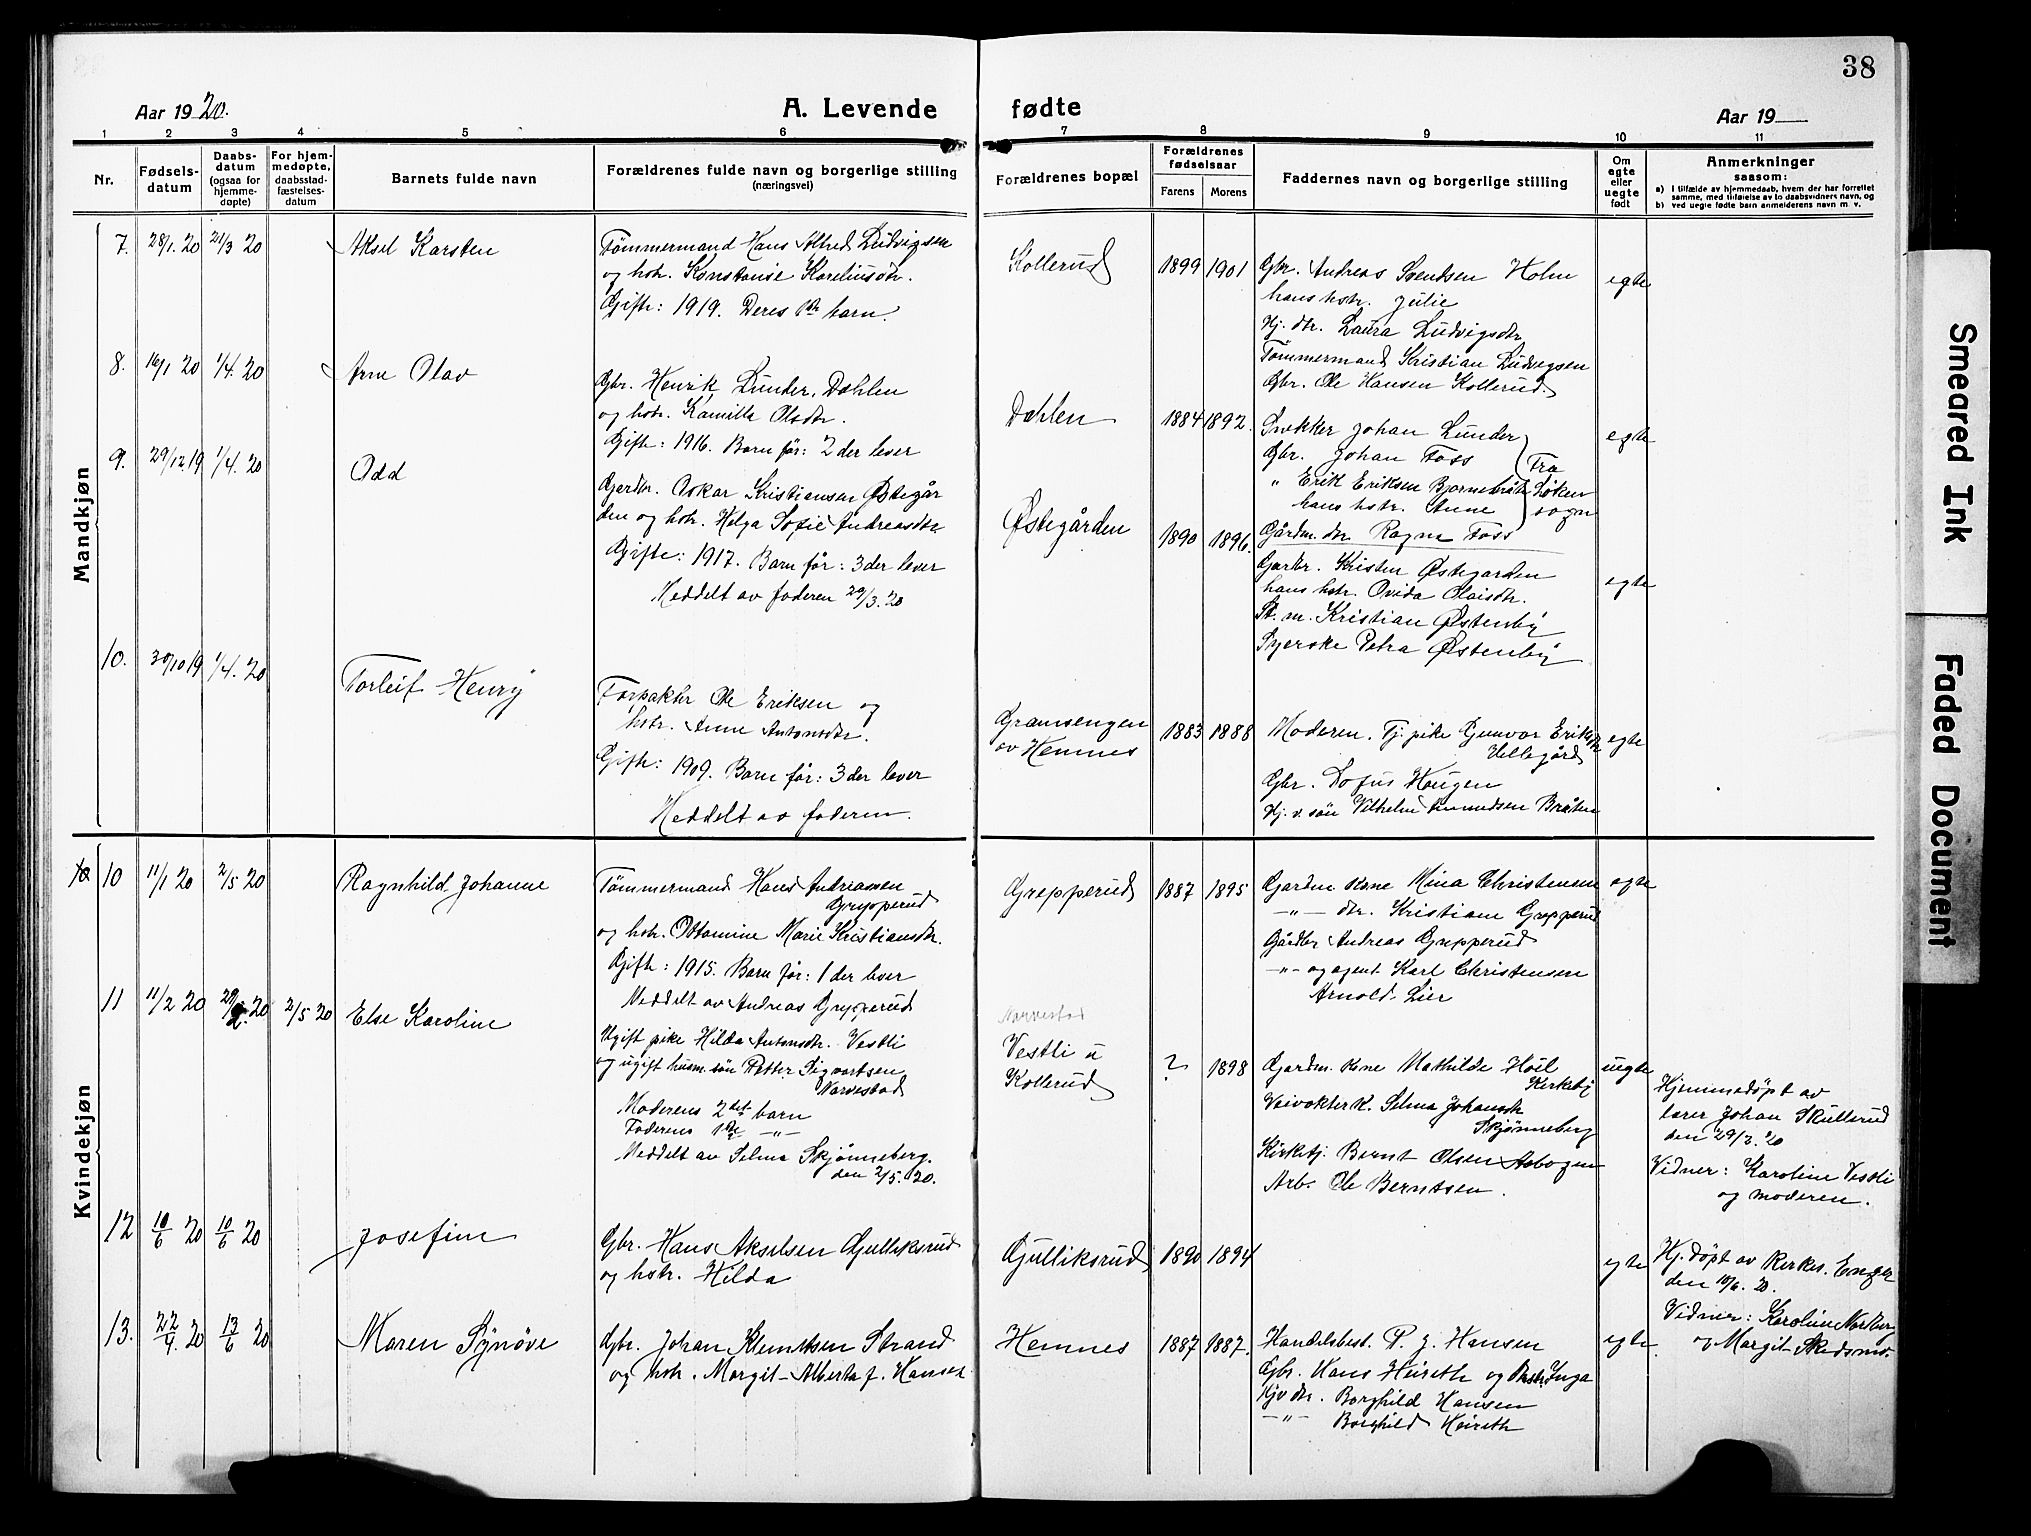 38
Aar 1920.
A. Levende fødte
Aar 19
1 2 3 4 5 6 7 8 9 10 11
Nr.
Fødsels-
datum
Daabs-
datum
(ogsaa for
hjemme-
døpte)
For hjem-
medøpte,
daabsstad-
fæstelses-
datum
Barnets fulde navn
Forældrenes fulde navn og borgerlige stilling
(næringsvei)
Forældrenes bopæl
Forældrenes
fødselsaar
Farens Morens
Faddernes navn og borgerlige stilling
Om
egte
eller
uegte
født
Anmerkninger
saasom:
a) i tilfælde av hjemmedaab, hvem der har forrettet
samme, med tilføielse av to daabsvidners navn, og
b) ved uegte fødte barn anmelderens navn m. v.
Mandkjøn
7. 28/1. 20 21/3 20 Aksel Karsten
Tømmermand Hans Alfred Ludvigsen
og hstr. Konstanse Kareliusdtr.
Gifte: 1919. Deres 1ste barn.
Kollerud 1899 1901
Gbr. Andreas Svendsen Holm
hans hstr. Julie
Hj. dtr. Laura Ludvigsdtr
Tømmermand Kristian Ludvigsen
Gbr. Ole Hansen Kollerud.
egte
8. 16/1 20 1/4. 20 Arne Olav
Gbr. Henrik Lunder, Dahlen
og hstr. Kamilla Olsdtr.
Gifte: 1916. Barn før: 2 der lever
Dahlen 1884 1892.
Snekker Johan Lunder
Gbr. Johan Foss
" Erik Eriksen Bjørnebråte
hans hstr. Anne
Fra
Løken
sogn
Gårdm. dtr Ragna Foss
egte
9. 29/12. 19 1/4. 20 Odd
Gardbr. Oskar Kristiansen Østegår
den og hstr. Helga Sofie Andreasdtr.
Gifte: 1917. Barn før: 3 der lever
Meddelt av faderen 29/3. 20
Østegården 1890 1896.
Gardbr. Kristen Østegarden
hans hstr. Ovida Olaisdtr.
St. m. Kristian Østenby
Syerske Petra Østenby
egte
10. 30/10 19 1/4. 20 Torleif Henry
Forpakter Ole Eriksen og
hstr. Anne Antonsdtr.
Gifte: 1909. Barn før: 3 der lever
Meddelt av faderen.
Gramsengen
av Hemnes
1883 1888
Moderen. Tj. pike Gunvor Eriksdtr
Vellegård
Gbr. Dofus Haugen
Hj. v. søn Vilhelm Amundsen Bråten
egte
Kvindekjøn
10 11/1 20 2/5 20 Ragnhild Johanne
Tømmermand Hans Andreassen
Grepperud
og hstr. Ottomine Marie Kristiansdtr.
Gifte: 1915. Barn før: 1 der lever
Meddelt av Andreas Grepperud
Grepperud 1887 1895
Gardm kone Mina Christensen
—"— dtr. Kristiane Grepperud
Gårdbr Andreas Grepperud
—"— og agent Karl Christensen
Arnold Lier
egte
11 11/2 20 29/2. 20 2/5 20 Else Karoline
Ugift pike Hilda Antonsdtr. Vestli
og ugift husm. søn Petter Sigvartsen
Narvestad
Moderens 2det barn
Faderens 1ste —"—
Meddelt av Selma Skjønneberg.
den 2/5. 20.
Narvestad
Vestli u
Kollerud
? 1898
Gardm. kone Mathilde Hoil
Kirkeby
Veivokter k. Selma Johansdtr
Skjønneberg
Kirketj. Bernt Olsen Aabogen
Arb. Ole Berntsen.
uegte
Hjemmedøpt av
lærer Johan Skullerud
den 29/2. 20
Vidner: Karoline Vestli
og moderen.
12 10/6 20 10/6 20 Josefine
Gbr. Hans Akselsen Gulliksrud
og hstr. Hilda
Gulliksrud 1890 1894
egte
Hj. døpt av Kirkes. Enger
den 10/6. 20.
Vidner: Karoline Norberg
og Margit Skedsmo.
13. 22/4. 20 13/6 20 Maren Synøve
Gbr. Johan Klemetsen Strand
og hstr. Margit Alberta f. Hansen
Hemnes 1887 1887.
Handelsbest. P. J. Hansen
Gbr. Hans Heireth og hstr. Inga
Hjv dtr. Borghild Hansen
—"— Borghild Heireth
egte.
Smeared Ink
Faded Document